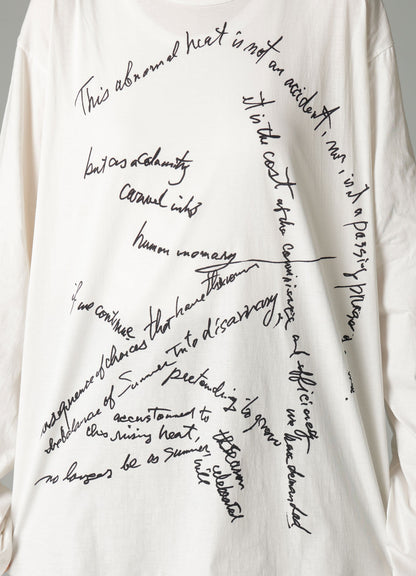 This abnormal heat is not an accident, nor is it a passing phase.....
it is the cost of the convenience and efficiency we have demanded
but as a calamity
carved into
human memory
if we continue
sequence of choices that have thrown
the balance of Summer into disarray,
pretending to grow
accustomed to
this rising heat,
the season
no longer be as summer
will
celebrated